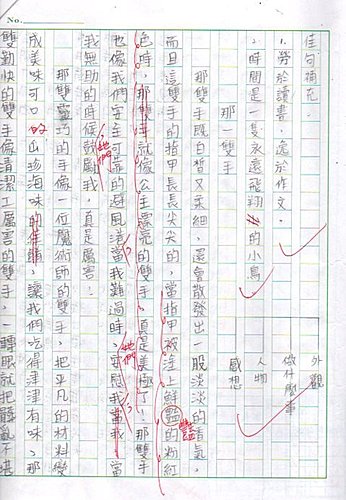 No.
佳句補充。
1. 勞於讀書,逸於作文。
2. 時間是一隻永遠飛翔的小鳥
外觀
做什麼事
人物
感想
那一雙手
那雙手既白皙又柔細,還會散發出一股淡淡的清氣。
而且這雙手的指甲長長尖尖的,當指甲被塗上鮮豔的粉紅
色時,那雙手就像公主漂亮的雙手,真是美極了!那雙手
也像我們安全可靠的避風港當我難過時,她們安慰我當我
我無助的時候她們鼓勵我,真是厲害!
那雙靈巧的手像一位魔術師的雙手,把平凡的材料變
成美味可口的山珍海味的佳餚,讓我們吃得津津有味。那
雙勤快的雙手像清潔工厲害的雙手,一轉眼就把髒亂不堪